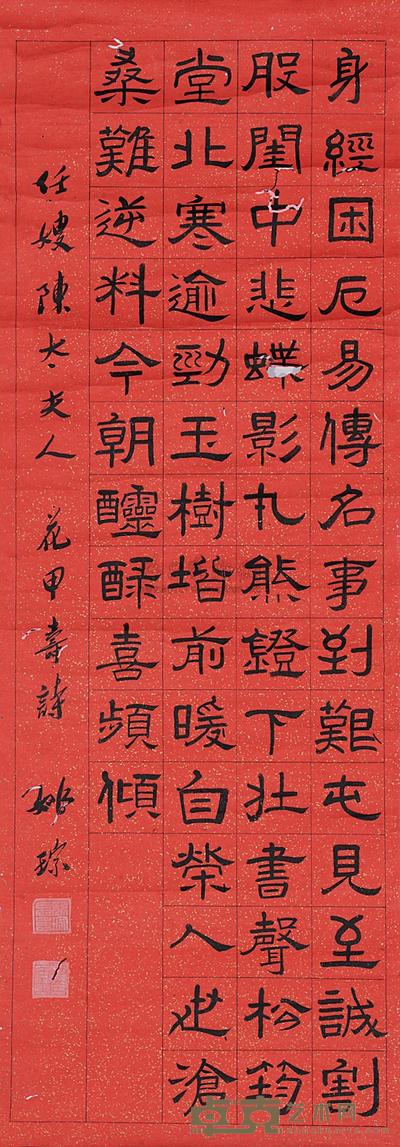 身經困厄易傳名事到艱屯見至誠割
股閨中悲蝶影丸熊鐙下壯書聲松筠
堂北寒逾勁玉樹堦前暖自榮人世滄
桑難逆料今朝醽醁喜頻傾
任嫂陳太夫人 花甲壽詩 姚琮
艺术网